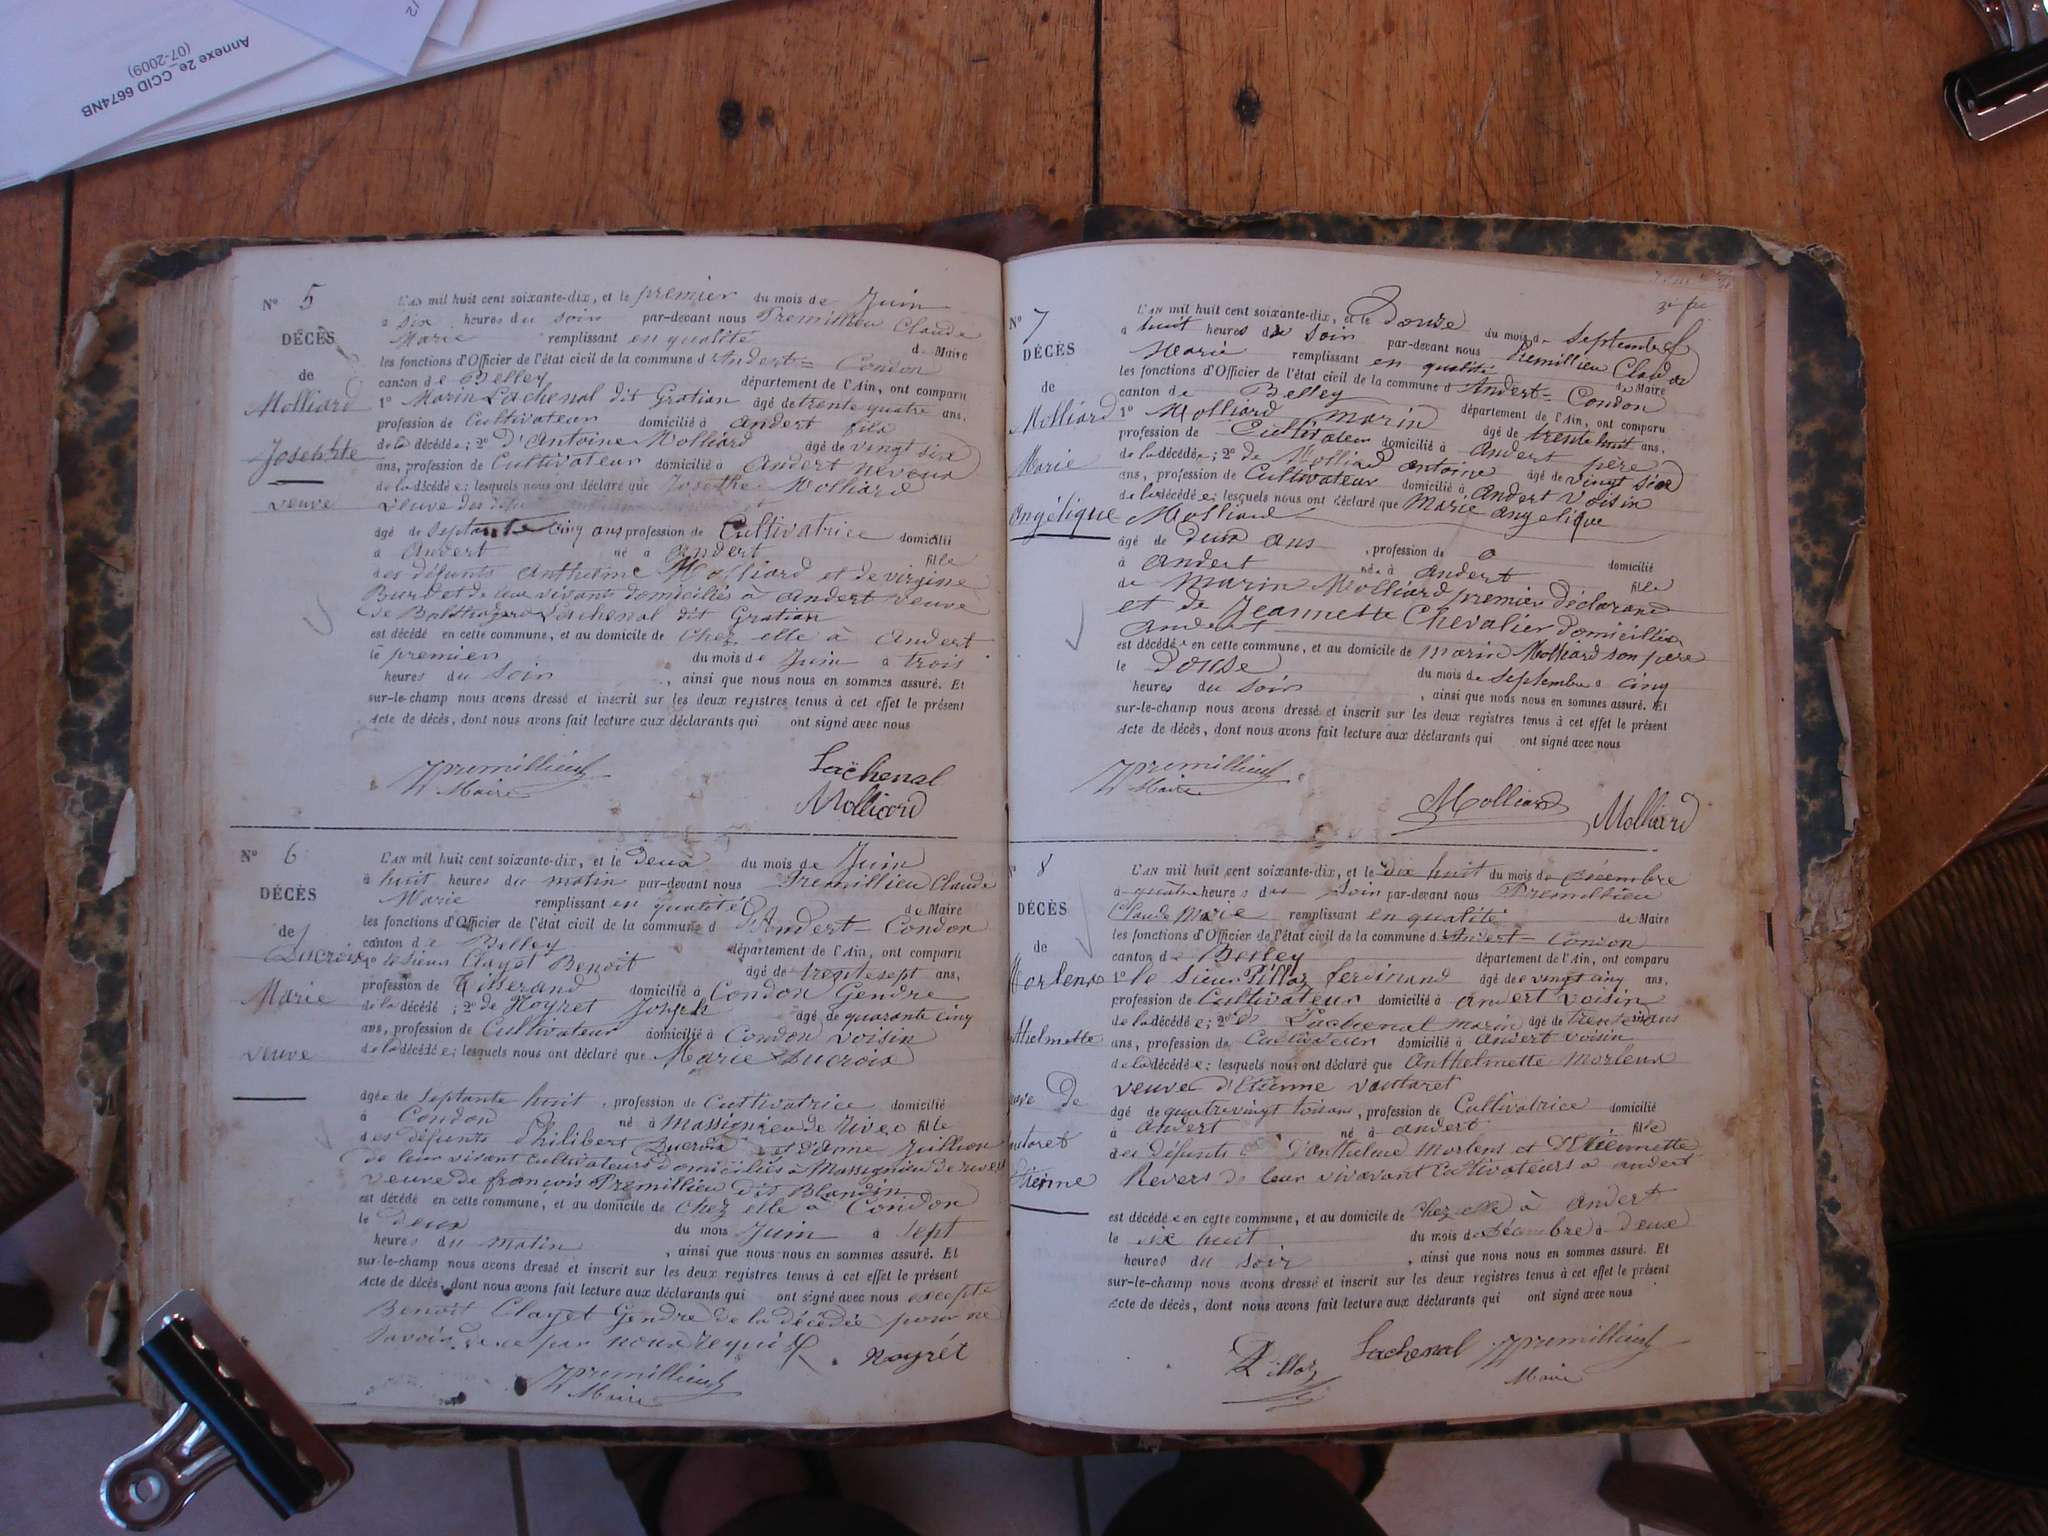 Annexe 2e_CCID 6674NB
(07-2009)
12
N° 5
DÉCÈS
de
Molliard
Josephte
veuve
L'AN mil huit cent soixante-dix, et le premier du mois de Juin
à six heures du soir par-devant nous Premillieu Claude
Marie remplissant en qualité de Maire
les fonctions d'Officier de l'état civil de la commune d'Andert-Condon
canton de Belley département de l'Ain, ont comparu
1° Marin Lachenal dit Gratian âgé de trente quatre ans,
profession de Cultivateur domicilié à Andert fils
de la décédée; 2° d'Antoine Molliard âgé de vingt six
ans, profession de Cultivateur domicilié à Andert neveux
de la décédée; lesquels nous ont déclaré que Josephte Molliard
veuve des
âgé de septante cinq ans profession de Cultivatrice domicilié
à Andert né à Andert fille
des défunts Anthelme Molliard et de virginie
Burdet de leur vivants domiciliés à Andert veuve
de Balthazard Lachenal dit Gratian
est décédé en cette commune, et au domicile de chez elle à Andert
le premier du mois de Juin à trois
heures du soir, ainsi que nous nous en sommes assuré. Et
sur-le-champ nous avons dressé et inscrit sur les deux registres tenus à cet effet le présent
Acte de décès, dont nous avons fait lecture aux déclarants qui ont signé avec nous
Premillieu Lachenal
Maire Molliard
N° 6
DÉCÈS
de
Ducroix
Marie
veuve
L'AN mil huit cent soixante-dix, et le deux du mois de Juin
à huit heures du matin par-devant nous Premillieu Claude
Marie remplissant en qualité de Maire
les fonctions d'Officier de l'état civil de la commune d'Andert-Condon
canton de Belley département de l'Ain, ont comparu
1° le sieur Clayet Benoit âgé de trente sept ans,
profession de Tisserand domicilié à Condon Gendre
de la décédé; 2° de Noyret Joseph âgé de quarante cinq
ans, profession de Cultivateur domicilié à Condon voisin
de la décédée; lesquels nous ont déclaré que Marie Ducroix
âgée de septante huit, profession de Cultivatrice domicilié
à Condon né à Massignieu de Rives fille
des défunts Philibert Ducroix et d'anne Jullion
de leur vivant cultivateurs domiciliés à Massignieu de rives
veuve de françois Premillieu dit Blandin
est décédé en cette commune, et au domicile de chez elle à Condon
le deux du mois Juin à sept
heures du matin, ainsi que nous nous en sommes assuré. Et
sur-le-champ nous avons dressé et inscrit sur les deux registres tenus à cet effet le présent
Acte de décès, dont nous avons fait lecture aux déclarants qui ont signé avec nous excepté
Benoit Clayet Gendre de la décédée pour ne
savoir de ce par nous requis
Premillieu Noyrét
Maire
N° 7
DÉCÈS
de
Molliard
Marie
Angélique
L'AN mil huit cent soixante-dix, et le Douse du mois de Septembre
à huit heures du soir par-devant nous Premillieu Claude
Marie remplissant en qualité de Maire
les fonctions d'Officier de l'état civil de la commune d'Andert-Condon
canton de Belley département de l'Ain, ont comparu
1° Molliard marin âgé de trente huit ans,
profession de Cultivateur domicilié à Andert père
de la décédée; 2° de Molliard antoine âgé de vingt six
ans, profession de Cultivateur domicilié à Andert Voisin
de la décédée; lesquels nous ont déclaré que Marie Angelique
Molliard
âgé de deux ans, profession de domicilié
à Andert née à Andert fille
de Marin Molliard premier déclarant
et de Jeannette Chevalier domiciliés
Andert
est décédée en cette commune, et au domicile de marin Molliard son père
le Douse du mois de septembre à cinq
heures du soir, ainsi que nous nous en sommes assuré. Et
sur-le-champ nous avons dressé et inscrit sur les deux registres tenus à cet effet le présent
Acte de décès, dont nous avons fait lecture aux déclarants qui ont signé avec nous
Premillieu
Maire
Molliard Molliard
N° 8
DÉCÈS
de
Morlens
Anthelmette
L'AN mil huit cent soixante-dix, et le dix huit du mois de décembre
à quatre heures du soir par-devant nous Premillieu
Claude Marie remplissant en qualité de Maire
les fonctions d'Officier de l'état civil de la commune d'Andert-Condon
canton de Belley département de l'Ain, ont comparu
1° le sieur Pilloz ferdinand âgé de vingt cinq ans,
profession de Cultivateur domicilié à Andert voisin
de la décédée; 2° Lachenal marin âgé de trente ans
ans, profession de Cultivateur domicilié à Andert voisin
de la décédée; lesquels nous ont déclaré que Anthelmette Morlens
veuve d'Etienne Vautaret
âgé de quatre vingt ans, profession de Cultivatrice domicilié
à Andert né à andert fille
des défunts d'anthelme Morlens et D'Etiennette
Revers de leur vivant Cultivateurs à andert
est décédée en cette commune, et au domicile de chez elle à Andert
le dix huit du mois de décembre à deux
heures du soir, ainsi que nous nous en sommes assuré. Et
sur-le-champ nous avons dressé et inscrit sur les deux registres tenus à cet effet le présent
Acte de décès, dont nous avons fait lecture aux déclarants qui ont signé avec nous
Pilloz Lachenal Premillieu
Maire